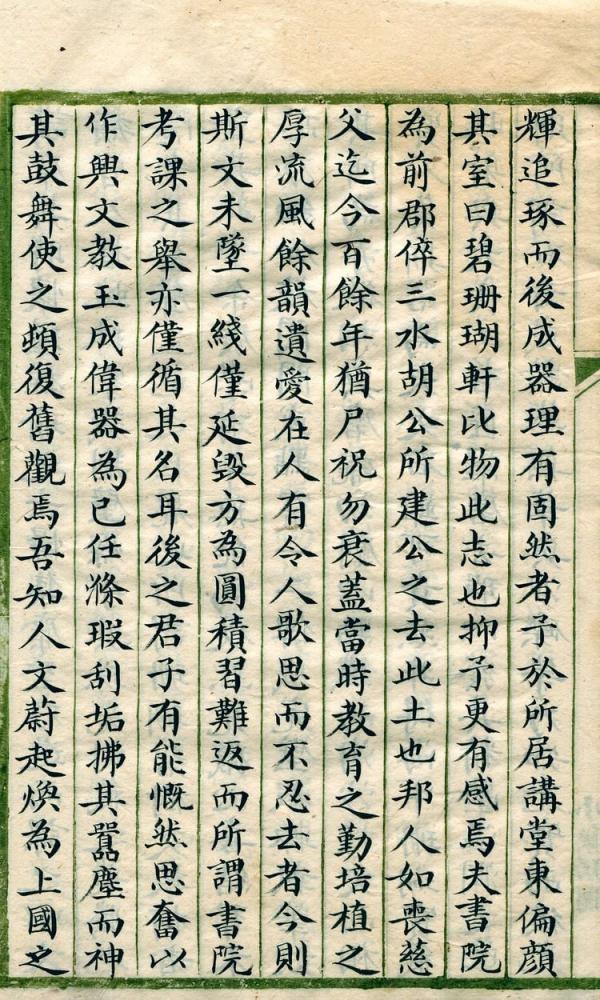 輝追琢而後成器理有固然者予於所居講堂東偏顏
其室曰碧珊瑚軒比物此志也抑予更有感焉夫書院
為前郡倅三水胡公所建公之去此土也邦人如喪慈
父迄今百餘年猶尸祝勿衰蓋當時教育之勤培植之
厚流風餘韻遺愛在人有令人歌思而不忍去者今則
斯文未墜一綫僅延毀方為圓積習難返而所謂書院
考課之舉亦僅循其名耳後之君子有能慨然思奮以
作興文教玉成偉器為己任滌瑕刮垢拂其嚣塵而神
其鼓舞使之頓復舊觀焉吾知人文蔚起煥為上國之